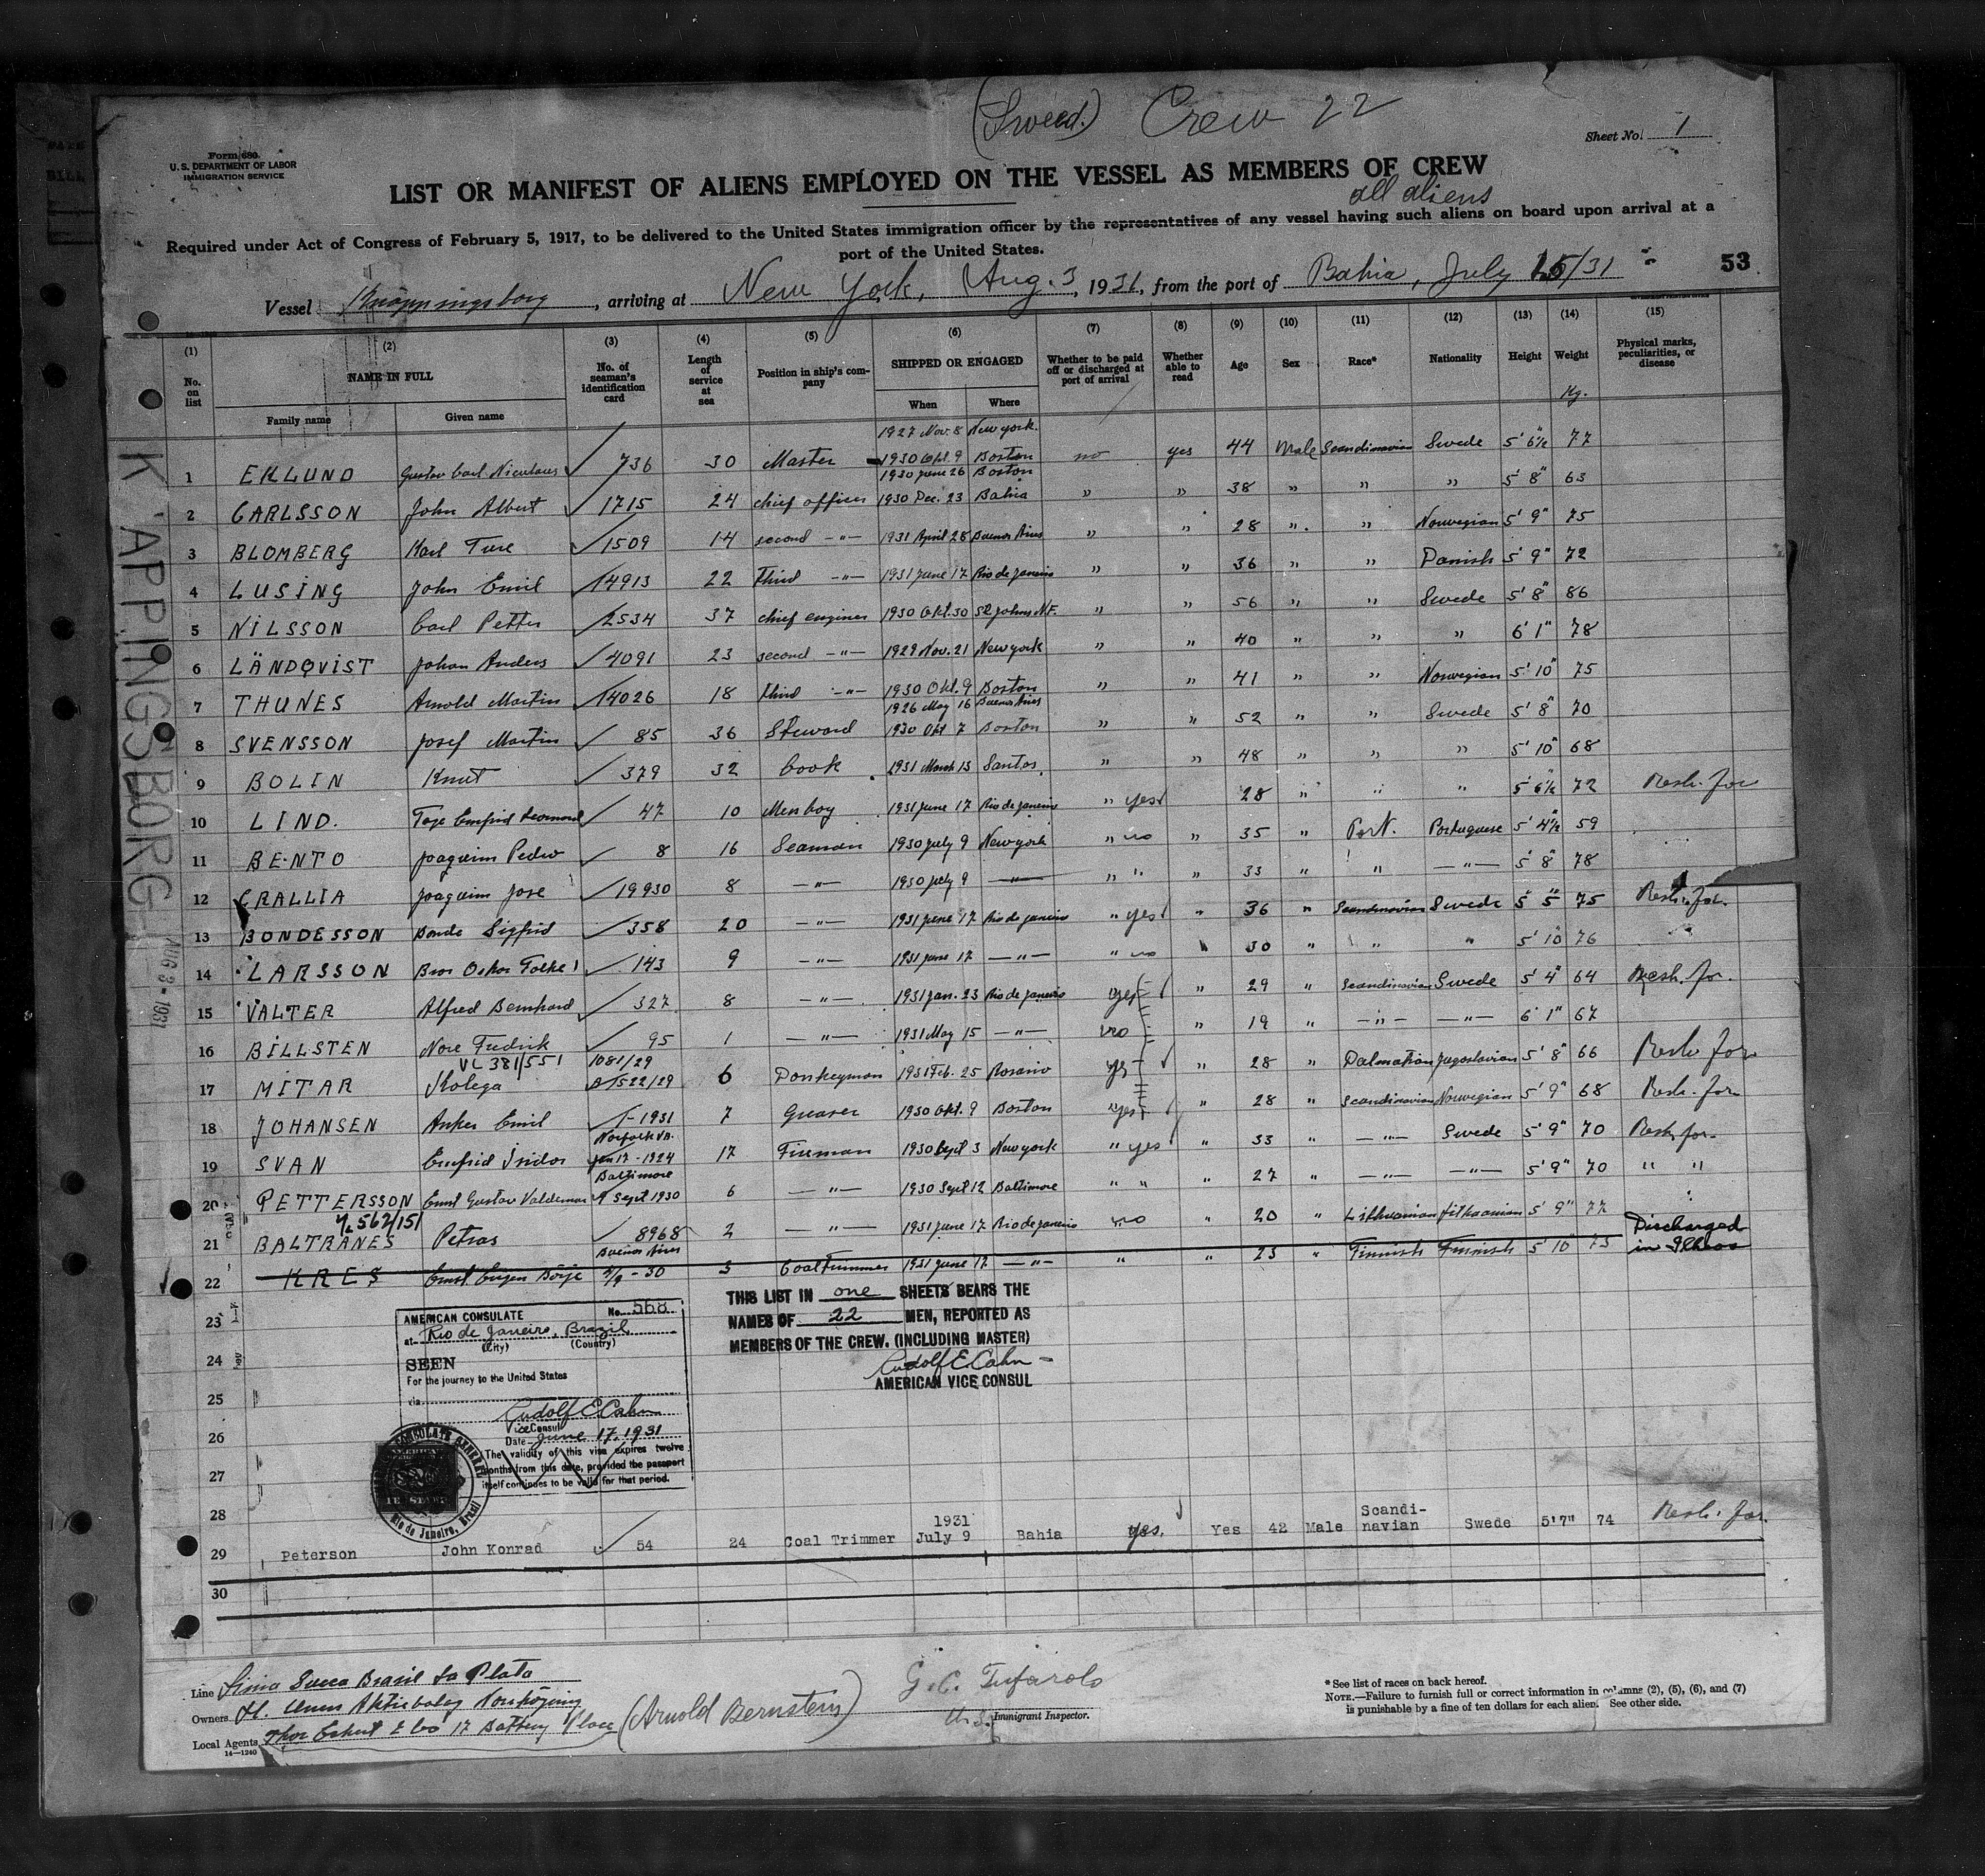 (Sweed.) Crew 22
Sheet No. 1
Form 680
U. S. DEPARTMENT OF LABOR
IMMIGRATION SERVICE
LIST OR MANIFEST OF ALIENS EMPLOYED ON THE VESSEL AS MEMBERS OF CREW
all aliens
Required under Act of Congress of February 5, 1917, to be delivered to the United States immigration officer by the representatives of any vessel having such aliens on board upon arrival at a
port of the United States.
53
Vessel Knäppingsborg, arriving at New York, Aug. 3, 1931, from the port of Bahia, July 15/31
(1) No. on list
(2) NAME IN FULL Family name Given name
(3) No. of seaman's identification card
(4) Length of service at sea
(5) Position in ship's company
(6) SHIPPED OR ENGAGED When Where
(7) Whether to be paid off or discharged at port of arrival
(8) Whether able to read
(9) Age
(10) Sex
(11) Race*
(12) Nationality
(13) Height
(14) Weight Kg.
(15) Physical marks, peculiarities, or disease
1927 Nov. 8 New york.
1 EKLUND Gustav Carl Nicolaus 736 30 Master 1930 Okt. 9 Boston no yes 44 Male Scandinavian Swede 5' 6½" 77
1930 June 26 Boston
2 CARLSSON John Albert 1715 24 chief officer 1930 Dec. 23 Bahia " " 38 " " " 5' 8" 63
3 BLOMBERG Karl Ture 1509 14 second -"- 1931 April 28 Buenos Aires " " 28 " " Norwegian 5' 9" 75
4 LUSING John Emil 14913 22 Third -"- 1931 June 17 Rio de Janeiro " " 36 " " Danish 5' 9" 72
5 NILSSON Carl Petter 2534 37 chief engineer 1930 Okt. 30 St Johns N.F. " " 56 " " Swede 5' 8" 86
6 LÄNDQVIST Johan Anders 4091 23 second -"- 1929 Nov. 21 New york " " 40 " " " 6' 1" 78
7 THUNES Arnold Martin 14026 18 third -"- 1930 Okt. 9 Boston " " 41 " " Norwegian 5' 10" 75
1926 May 16 Buenos Aires
8 SVENSSON Josef Martin 85 36 Steward 1930 Okt 7 Boston " " 52 " " Swede 5' 8" 70
9 BOLIN Knut 379 32 Cook 1931 March 13 Santos " " 48 " " " 5' 10" 68
10 LIND. 47 10 Messboy 1931 June 17 Rio de Janeiro " yes 28 " " " 5' 6½" 72 Resh. for
11 BENTO Joaquim Pedro 8 16 Seaman 1930 July 9 New york " no " 35 " Port. Portuguese 5' 4½" 59
12 CRALLIA Joaquim Jose 19930 8 -"- 1930 July 9 -"- " " " 33 " " -"- 5' 8" 78
13 BONDESSON Bonde Sigfrid 358 20 -"- 1931 June 17 Rio de janeiro " yes " 36 " Scandinavian Swede 5' 5" 75 Resh. for
14 LARSSON Bror Oskar Folke 143 9 -"- 1931 June 17 -"- " no " 30 " " " 5' 10" 76
15 VALTER Alfred Bernhard 327 8 -"- 1931 Jan. 23 Rio de janeiro yes " 29 " Scandinavian Swede 5' 4" 64 Resh. for
16 BILLSTEN Nore Fredrik 95 1 -"- 1931 May 15 -"- no " 19 " -"- -"- 6' 1" 67
VL 381/551 1081/29
17 MITAR Kolega 1522/29 6 Donkeyman 1931 Feb. 25 Rosario yes " 28 " Dalmation Jugoslavian 5' 8" 66 Resh for
18 JOHANSEN Anker Emil 1-1931 7 Greaser 1930 Okt. 9 Boston yes " 28 " Scandinavian Norwegian 5' 9" 68 Resh. for
Norfolk VA.
19 SVAN Enefrid Isidor Jan 17 - 1924 17 Fireman 1930 Sept 3 New york " yes " 33 " -"- Swede 5' 9" 70 Resh. for
Baltimore
20 PETTERSSON Ernst Gustav Valdemar 9 Sept 1930 6 -"- 1930 Sept 12 Baltimore " " " 27 " -"- -"- 5' 9" 70 " "
562/151
21 BALTRANES Petras 8968 2 -"- 1931 June 17 Rio de janeiro no " 20 " Lithuanian Lithuanian 5' 9" 77
Buenos Aires Discharged
22 KRES Ernst Eugen Börje - 30 3 Coal Trimmer 1931 June 17 -"- " " 23 " Finnish Finnish 5' 10" 75 in Ilheos
23
24
25
26
27
28
29 Peterson John Konrad 54 24 Coal Trimmer 1931 July 9 Bahia yes. Yes 42 Male Scandi-navian Swede 5'7" 74 Resh. for.
30
K'APPINGSBORG
AUG 3 - 1931
AMERICAN CONSULATE No. 568
at Rio de Janeiro, Brazil
(City) (Country)
SEEN
For the journey to the United States
via
Rudolf E. Cahn
Vice Consul
Date June 17, 1931
The validity of this visa expires twelve
months from this date, provided the passport
itself continues to be valid for that period.
Rio de Janeiro, Brazil
THIS LIST IN one SHEETS BEARS THE
NAMES OF 22 MEN, REPORTED AS
MEMBERS OF THE CREW. (INCLUDING MASTER)
Rudolf E. Cahn
AMERICAN VICE CONSUL
Line Linea Sueca Brasil La Plata
Owners Aktiebolag Norrköping
Local Agents Thor Eckert & Co 17 Battery Place (Arnold Bernstein)
14—1240
G. C. Tufarolo
U.S. Immigrant Inspector.
* See list of races on back hereof.
NOTE.—Failure to furnish full or correct information in columns (2), (5), (6), and (7)
is punishable by a fine of ten dollars for each alien. See other side.